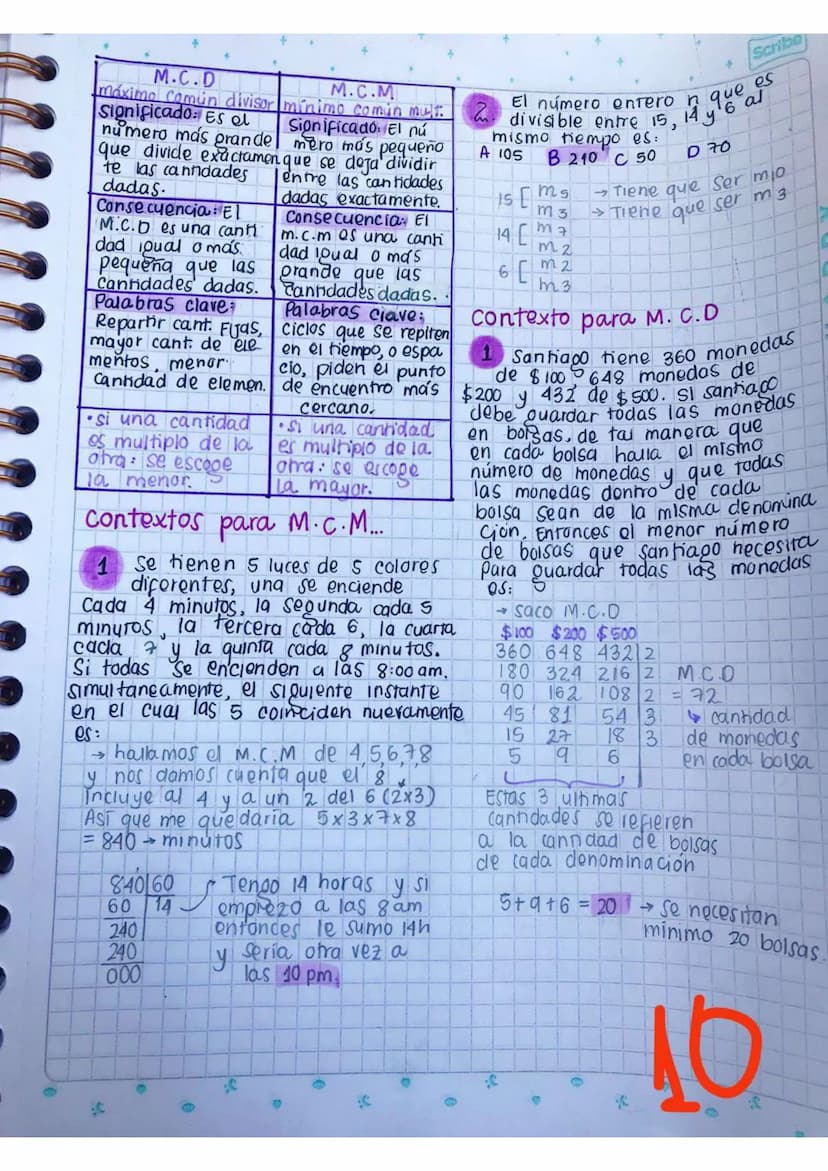 Scribe
M.C.D
máximo común divisor
Significado: Es el
número más grande
que divide exactamen
te las cantidades
dadas.
Consecuencia: El
M.C.D es una canti
dad igual o más
pequeña que las
cantidades dadas.
Palabras clave:
Repartir cant. Fijas,
mayor cant. de ele
mentos, menor
cantidad de elemen.
•si una cantidad
es multiplo de la
otra: se escoge
la menor.
M.C.M
mínimo común mult.
Significado: El nú
mero más pequeño
que se deja dividir
entre las cantidades
dadas exactamente.
Consecuencia: El
m.c.m es una canti
dad igual o más
grande que las
cantidades dadas.
Palabras clave:
ciclos que se repiten
en el tiempo, o espa
cio, piden el punto
de encuentro más
cercano.
•si una cantidad
es multiplo de la
otra: se escoge
la mayor.
Contextos para M.C.M...
1 Se tienen 5 luces de 5 colores
diferentes, una se enciende
cada 4 minutos, la segunda cada 5
minutos, la tercera cada 6, la cuarta
cada 7 y la quinta cada 8 minutos.
Si todas se encienden a las 8:00am.
simultaneamente, el siguiente instante
en el cual las 5 coinciden nuevamente
es:
→ hallamos el M.C.M de 4,5,6,7,8
y nos damos cuenta que el 8
Incluye al 4 y a un 2 del 6 (2x3)
Así que me quedaría 5x3x7x8
= 840 → minutos
840|60
60 14
240
240
000
Tengo 14 horas y si
empiezo a las 8am
entonces le sumo 14h
y sería otra vez a
las 10 pm.
2. El número entero n que es
divisible entre 15, 14 y 6 al
mismo tiempo es:
A 105 B 210 C 50 D 70
15 [ m5 → Tiene que ser m10
m3 → Tiene que ser m3
14 [ m7
m2
6 [ m2
m3
Contexto para M.C.D
1 Santiago tiene 360 monedas
de $100, 648 monedas de
$200 y 432 de $500. Si santiago
debe guardar todas las monedas
en bolsas, de tal manera que
en cada bolsa halla el mismo
número de monedas y que todas
las monedas dentro de cada
bolsa sean de la misma denomina
ción. Entonces el menor número
de bolsas que santiago necesita
para guardar todas las monedas
es:
→ saco M.C.D
$100 $200 $500
360 648 432 2
180 324 216 2 M.C.D
90 162 108 2 = 72
45 81 54 3 ↳ cantidad
15 27 18 3 de monedas
5 9 6 en cada bolsa
Estas 3 ultimas
cantidades se refieren
a la cantidad de bolsas
de cada denominación
5+9+6 = 20 → se necesitan
mínimo 20 bolsas.
10